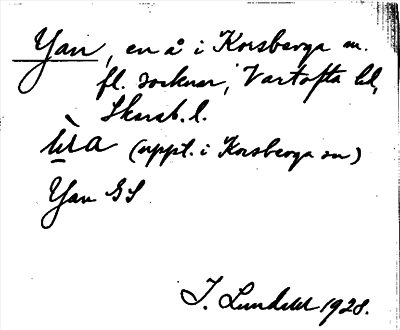 Yan, en å i Korsberga m.
fl. socknar, Vartofta hd,
Skarab. l.
(uppt. i Korsberga sn)
Yan GS
J. Lundahl 1928.